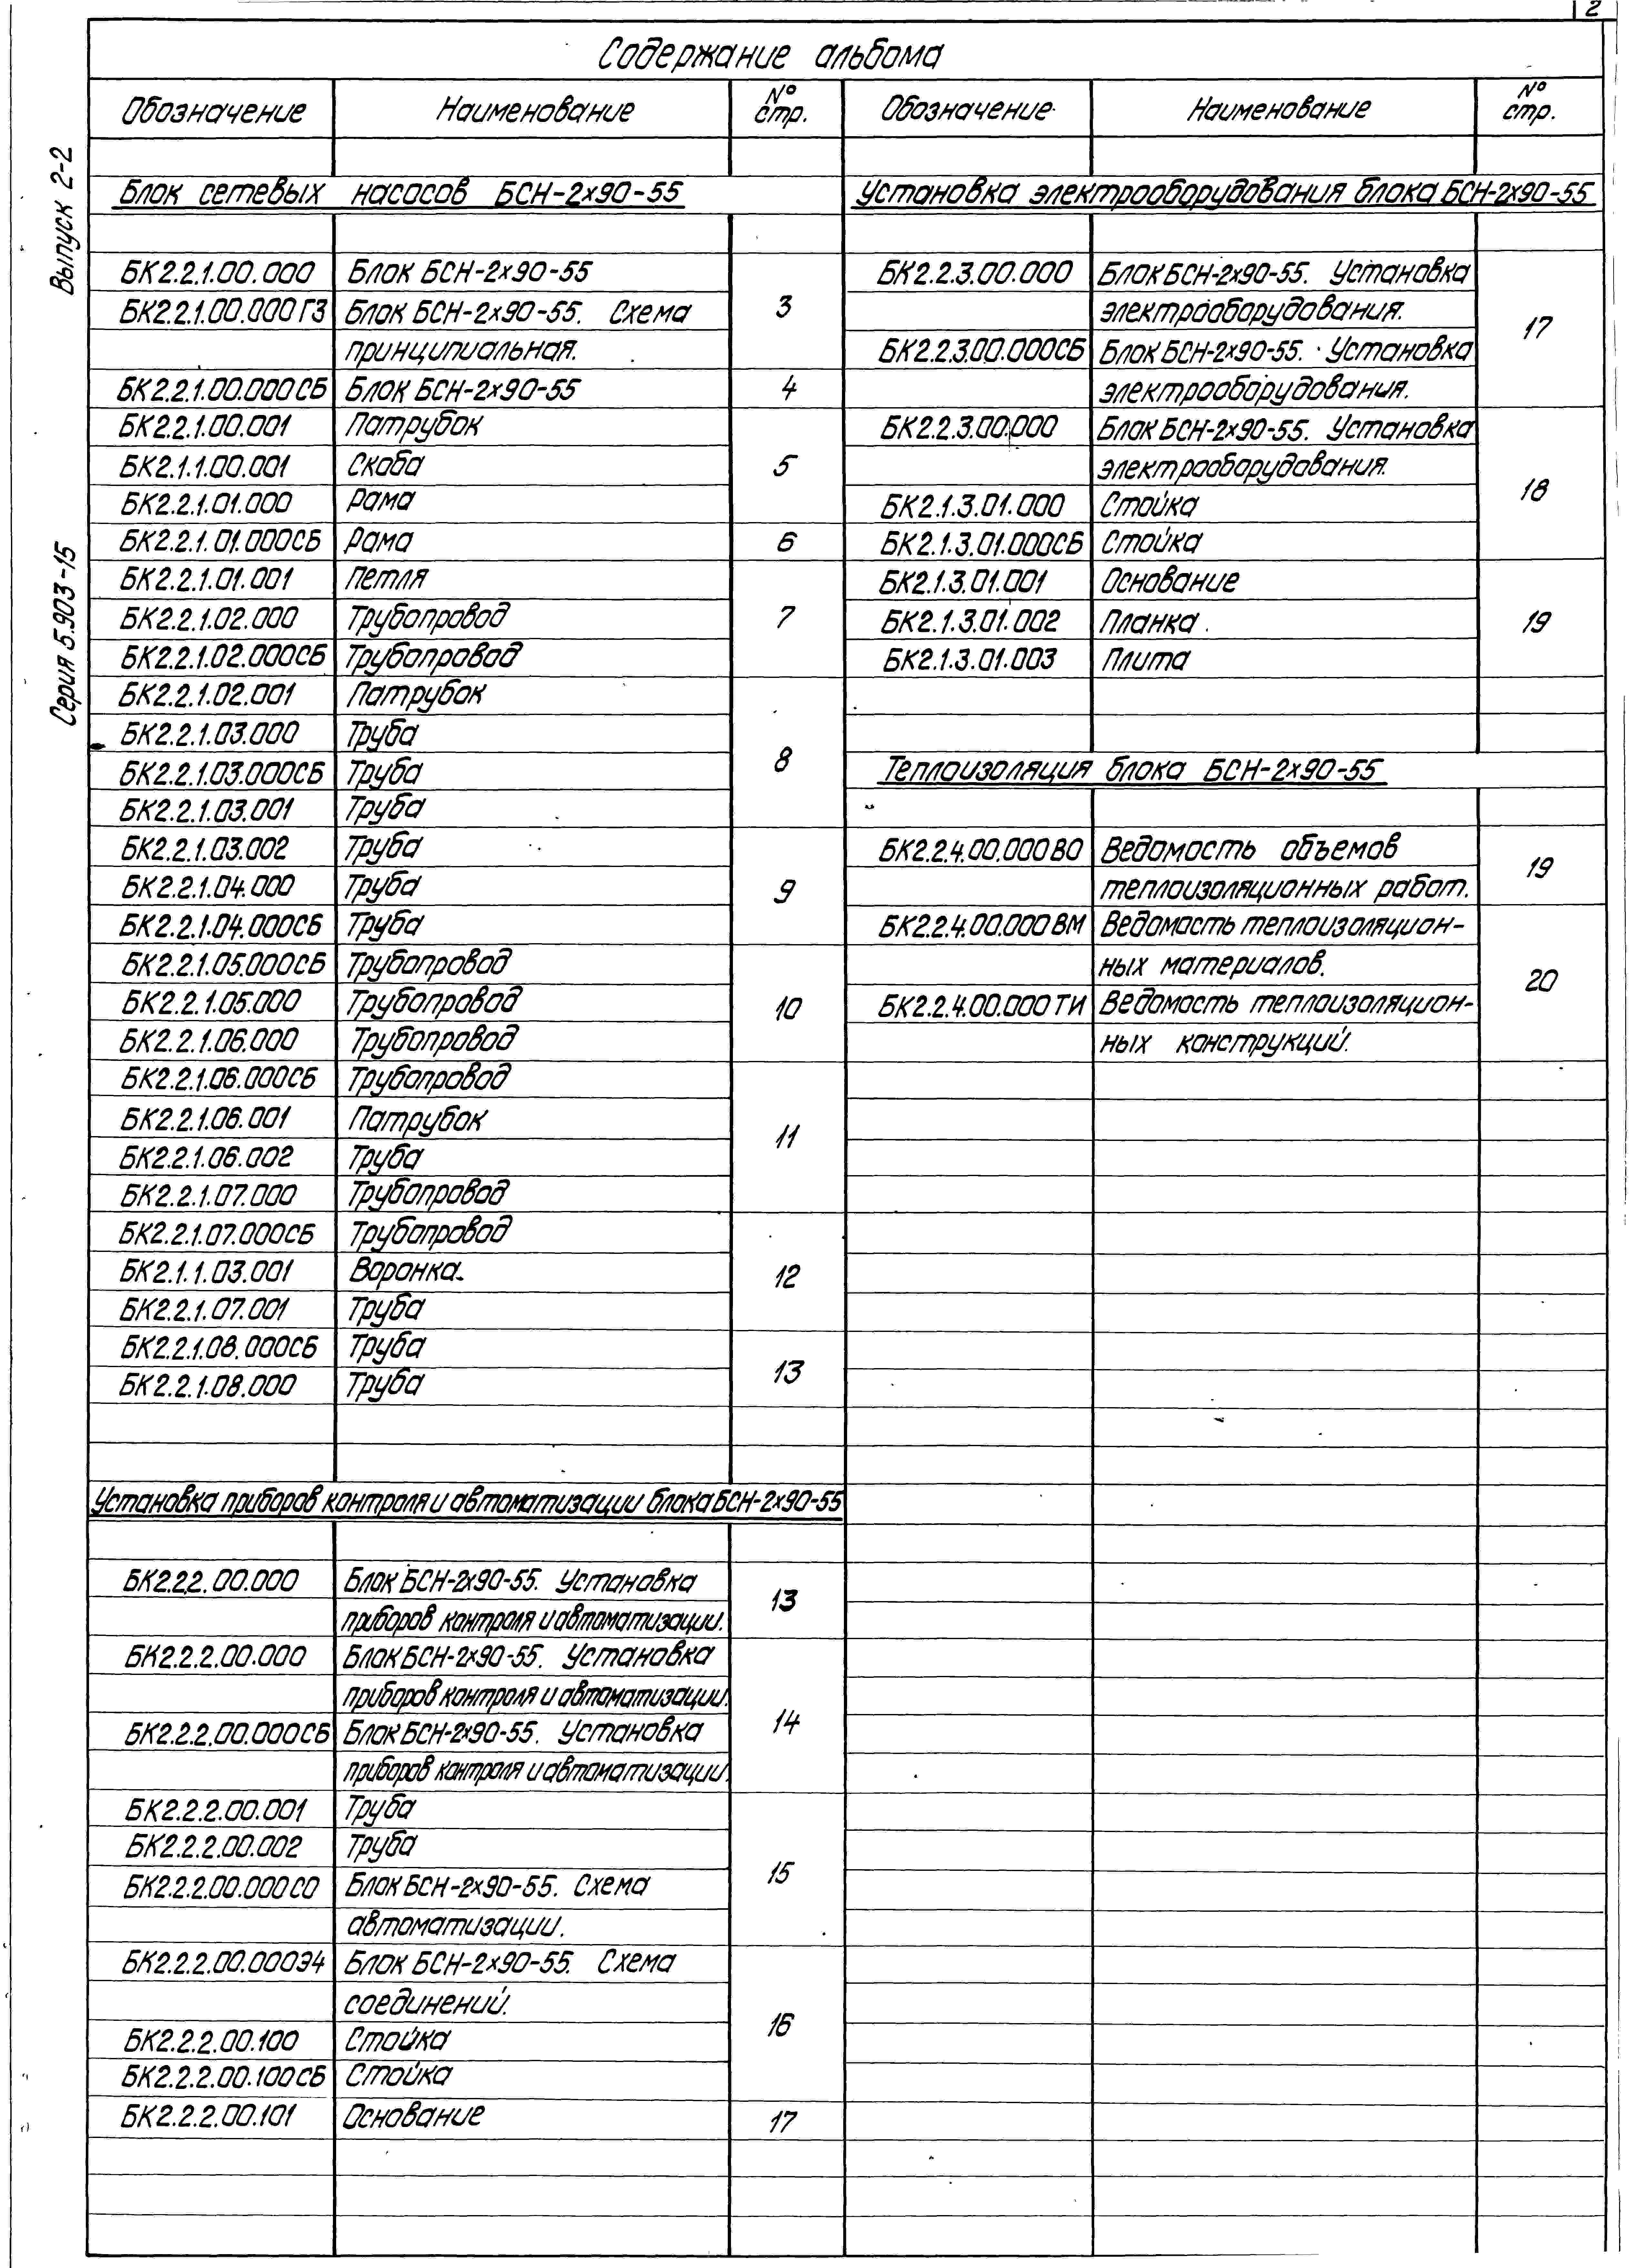 2
Содержание альбома
Выпуск 2-2
Серия 5.903-15
Обозначение Наименование № стр.
Блок сетевых насосов БСН-2х90-55
БК2.2.1.00.000 Блок БСН-2х90-55
БК2.2.1.00.000ГЗ Блок БСН-2х90-55. Схема 3
принципиальная.
БК2.2.1.00.000СБ Блок БСН-2х90-55 4
БК2.2.1.00.001 Патрубок
БК2.1.1.00.001 Скоба 5
БК2.2.1.01.000 Рама
БК2.2.1.01.000СБ Рама 6
БК2.2.1.01.001 Петля
БК2.2.1.02.000 Трубопровод 7
БК2.2.1.02.000СБ Трубопровод
БК2.2.1.02.001 Патрубок
БК2.2.1.03.000 Труба
БК2.2.1.03.000СБ Труба 8
БК2.2.1.03.001 Труба
БК2.2.1.03.002 Труба
БК2.2.1.04.000 Труба 9
БК2.2.1.04.000СБ Труба
БК2.2.1.05.000СБ Трубопровод
БК2.2.1.05.000 Трубопровод 10
БК2.2.1.06.000 Трубопровод
БК2.2.1.06.000СБ Трубопровод
БК2.2.1.06.001 Патрубок 11
БК2.2.1.06.002 Труба
БК2.2.1.07.000 Трубопровод
БК2.2.1.07.000СБ Трубопровод
БК2.1.1.03.001 Воронка. 12
БК2.2.1.07.001 Труба
БК2.2.1.08.000СБ Труба
БК2.2.1.08.000 Труба 13
Установка приборов контроля и автоматизации блока БСН-2х90-55
БК2.2.2.00.000 Блок БСН-2х90-55. Установка 13
приборов контроля и автоматизации.
БК2.2.2.00.000 Блок БСН-2х90-55. Установка
приборов контроля и автоматизации.
БК2.2.2.00.000СБ Блок БСН-2х90-55. Установка 14
приборов контроля и автоматизации.
БК2.2.2.00.001 Труба
БК2.2.2.00.002 Труба
БК2.2.2.00.000СО Блок БСН-2х90-55. Схема 15
автоматизации.
БК2.2.2.00.000Э4 Блок БСН-2х90-55. Схема
соединений.
БК2.2.2.00.100 Стойка 16
БК2.2.2.00.100СБ Стойка
БК2.2.2.00.101 Основание 17
Обозначение Наименование № стр.
Установка электрооборудования блока БСН-2х90-55
БК2.2.3.00.000 Блок БСН-2х90-55. Установка
электрооборудования. 17
БК2.2.3.00.000СБ Блок БСН-2х90-55. Установка
электрооборудования.
БК2.2.3.00.000 Блок БСН-2х90-55. Установка
электрооборудования.
БК2.1.3.01.000 Стойка 18
БК2.1.3.01.000СБ Стойка
БК2.1.3.01.001 Основание
БК2.1.3.01.002 Планка. 19
БК2.1.3.01.003 Плита
Теплоизоляция блока БСН-2х90-55
БК2.2.4.00.000ВО Ведомость объемов 19
теплоизоляционных работ.
БК2.2.4.00.000ВМ Ведомасть теплоизоляцион-
ных материалов. 20
БК2.2.4.00.000ТИ Ведомость теплоизоляцион-
ных конструкций.